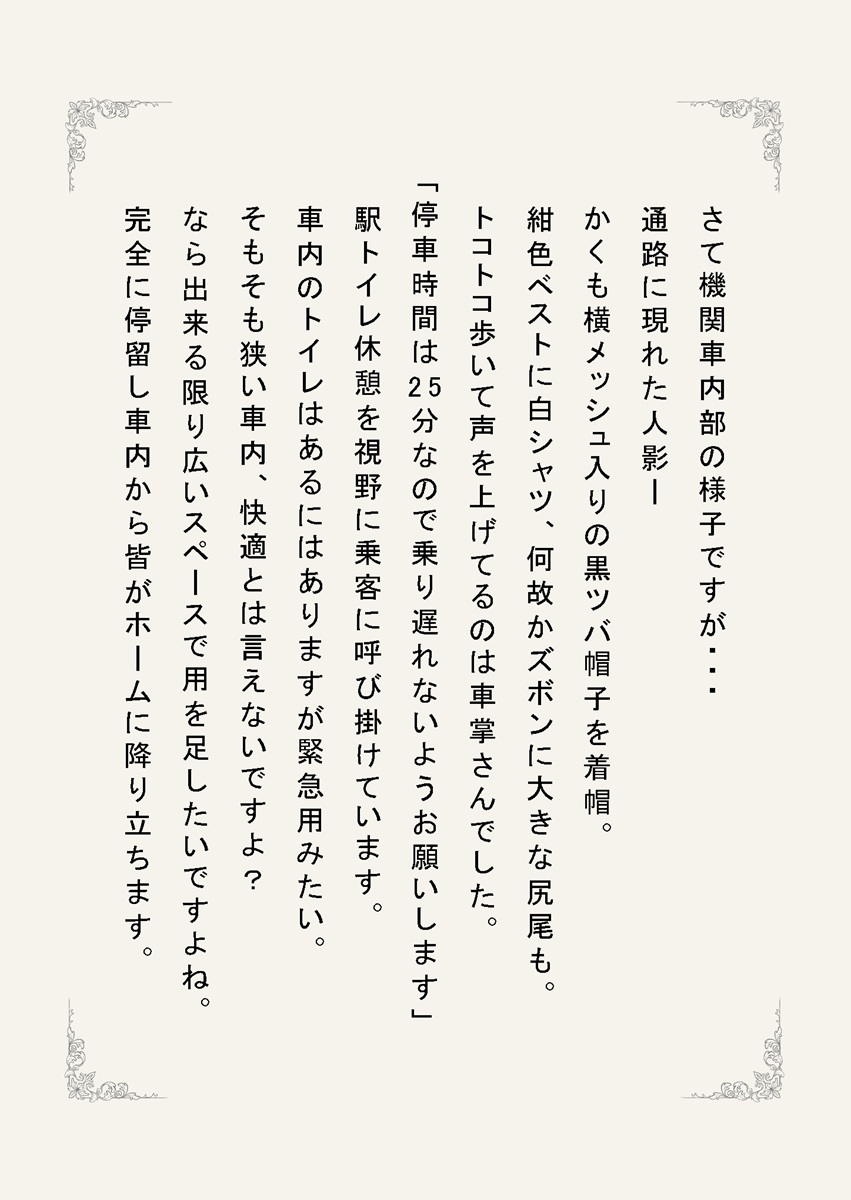 さて機関車内部の様子ですが・・・
通路に現れた人影ー
かくも横メッシュ入りの黒ツバ帽子を着帽。
紺色ベストに白シャツ、何故かズボンに大きな尻尾も。
トコトコ歩いて声を上げてるのは車掌さんでした。
「停車時間は25分なので乗り遅れないようお願いします」
駅トイレ休憩を視野に乗客に呼び掛けています。
車内のトイレはあるにはありますが緊急用みたい。
そもそも狭い車内、快適とは言えないですよ？
なら出来る限り広いスペースで用を足したいですよね。
完全に停留し車内から皆がホームに降り立ちます。